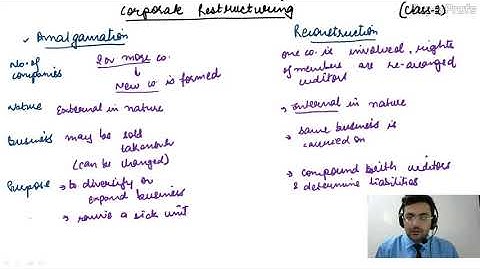 Corporate Restructuring
(Class-2)
Amalgamation
Reconstruction
No. of companies
2 or more co.
New co is formed
one co. is involved, rights
of members are re-arranged
creditors
Nature
External in nature
→ Internal in nature
Business
may be sold
takeover
(can be changed)
→ same business is
carried on
Purpose
→ to diversify or
expand business
→ revive a sick unit
→ compound with creditors
& determine liabilities